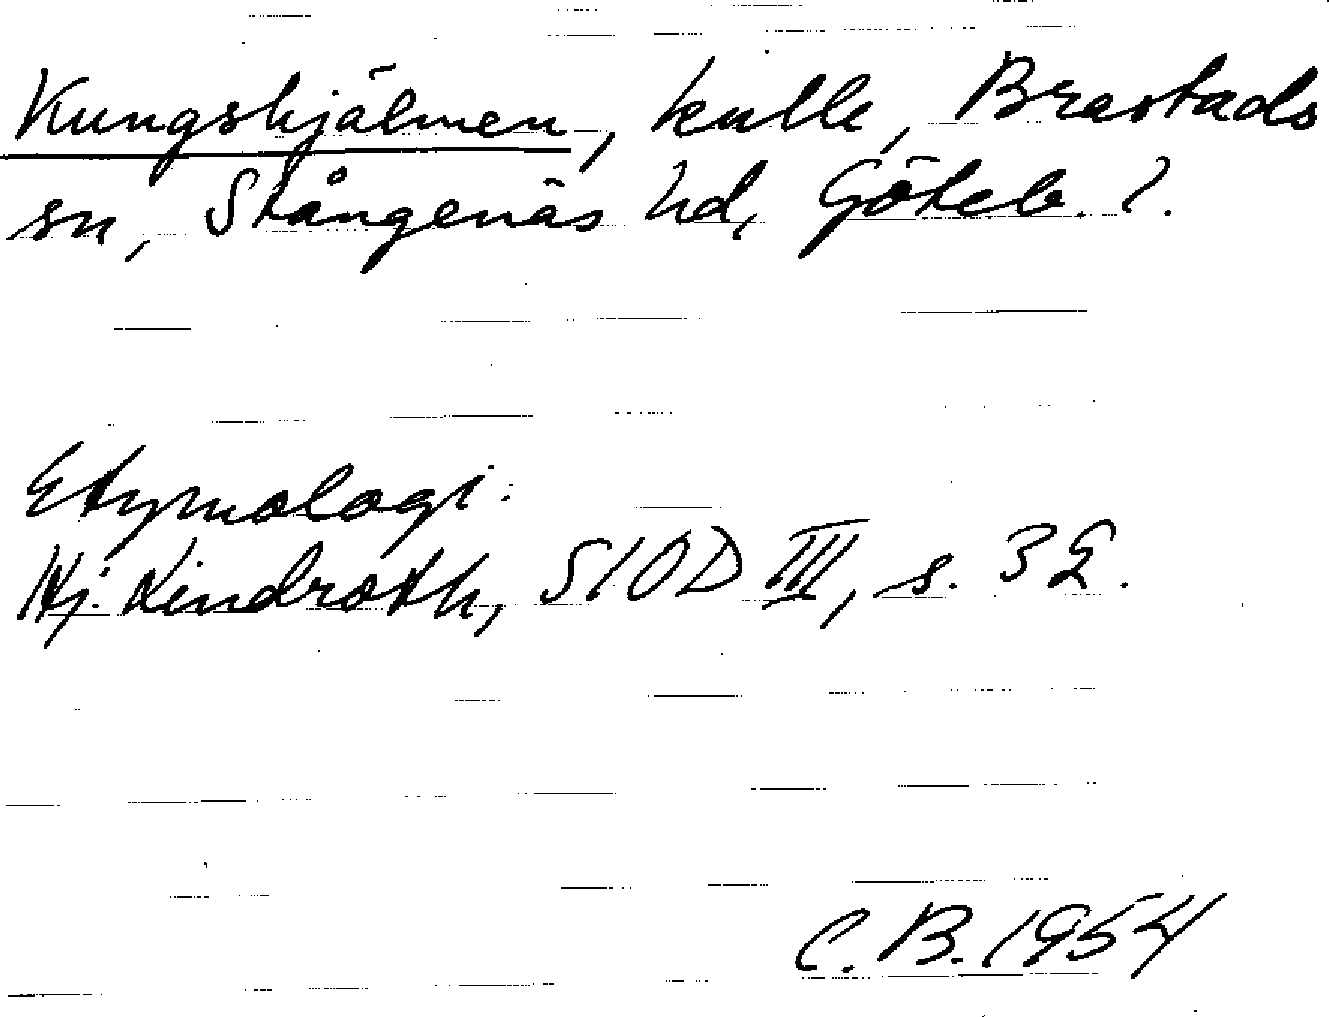 Kungshjälmen, kulle, Brastads
sn, Stångenäs hd, Göteb. l.
Etymologi:
Hj. Lindroth, SIOD III, s. 32.
C. B. 1954